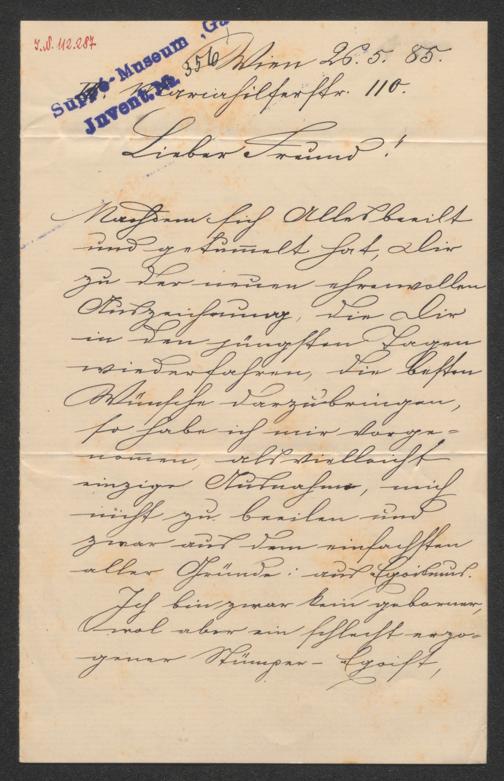 J.N. 112.287
Suppé-Museum
Invent. No. 356
Wien 26.5.85.
Mariahilferstr. 110.
Lieber Freund!
Nachdem sich Alles beeilt
und getum̄elt hat, Dir
zu der neuen ehrenvollen
Auszeichnung, die Dir
in den jüngsten Tagen
wiederfahren, die besten
Wünsche darzubringen,
so habe ich mir vorge-
nom̄en, als vielleicht
einzige Ausnahme, mich
nicht zu beeilen und
zwar aus dem einfachsten
aller Gründe: aus Egoismus.
Ich bin zwar kein geborner,
wol aber ein schlecht erzo-
gener Stümper-Egoist,